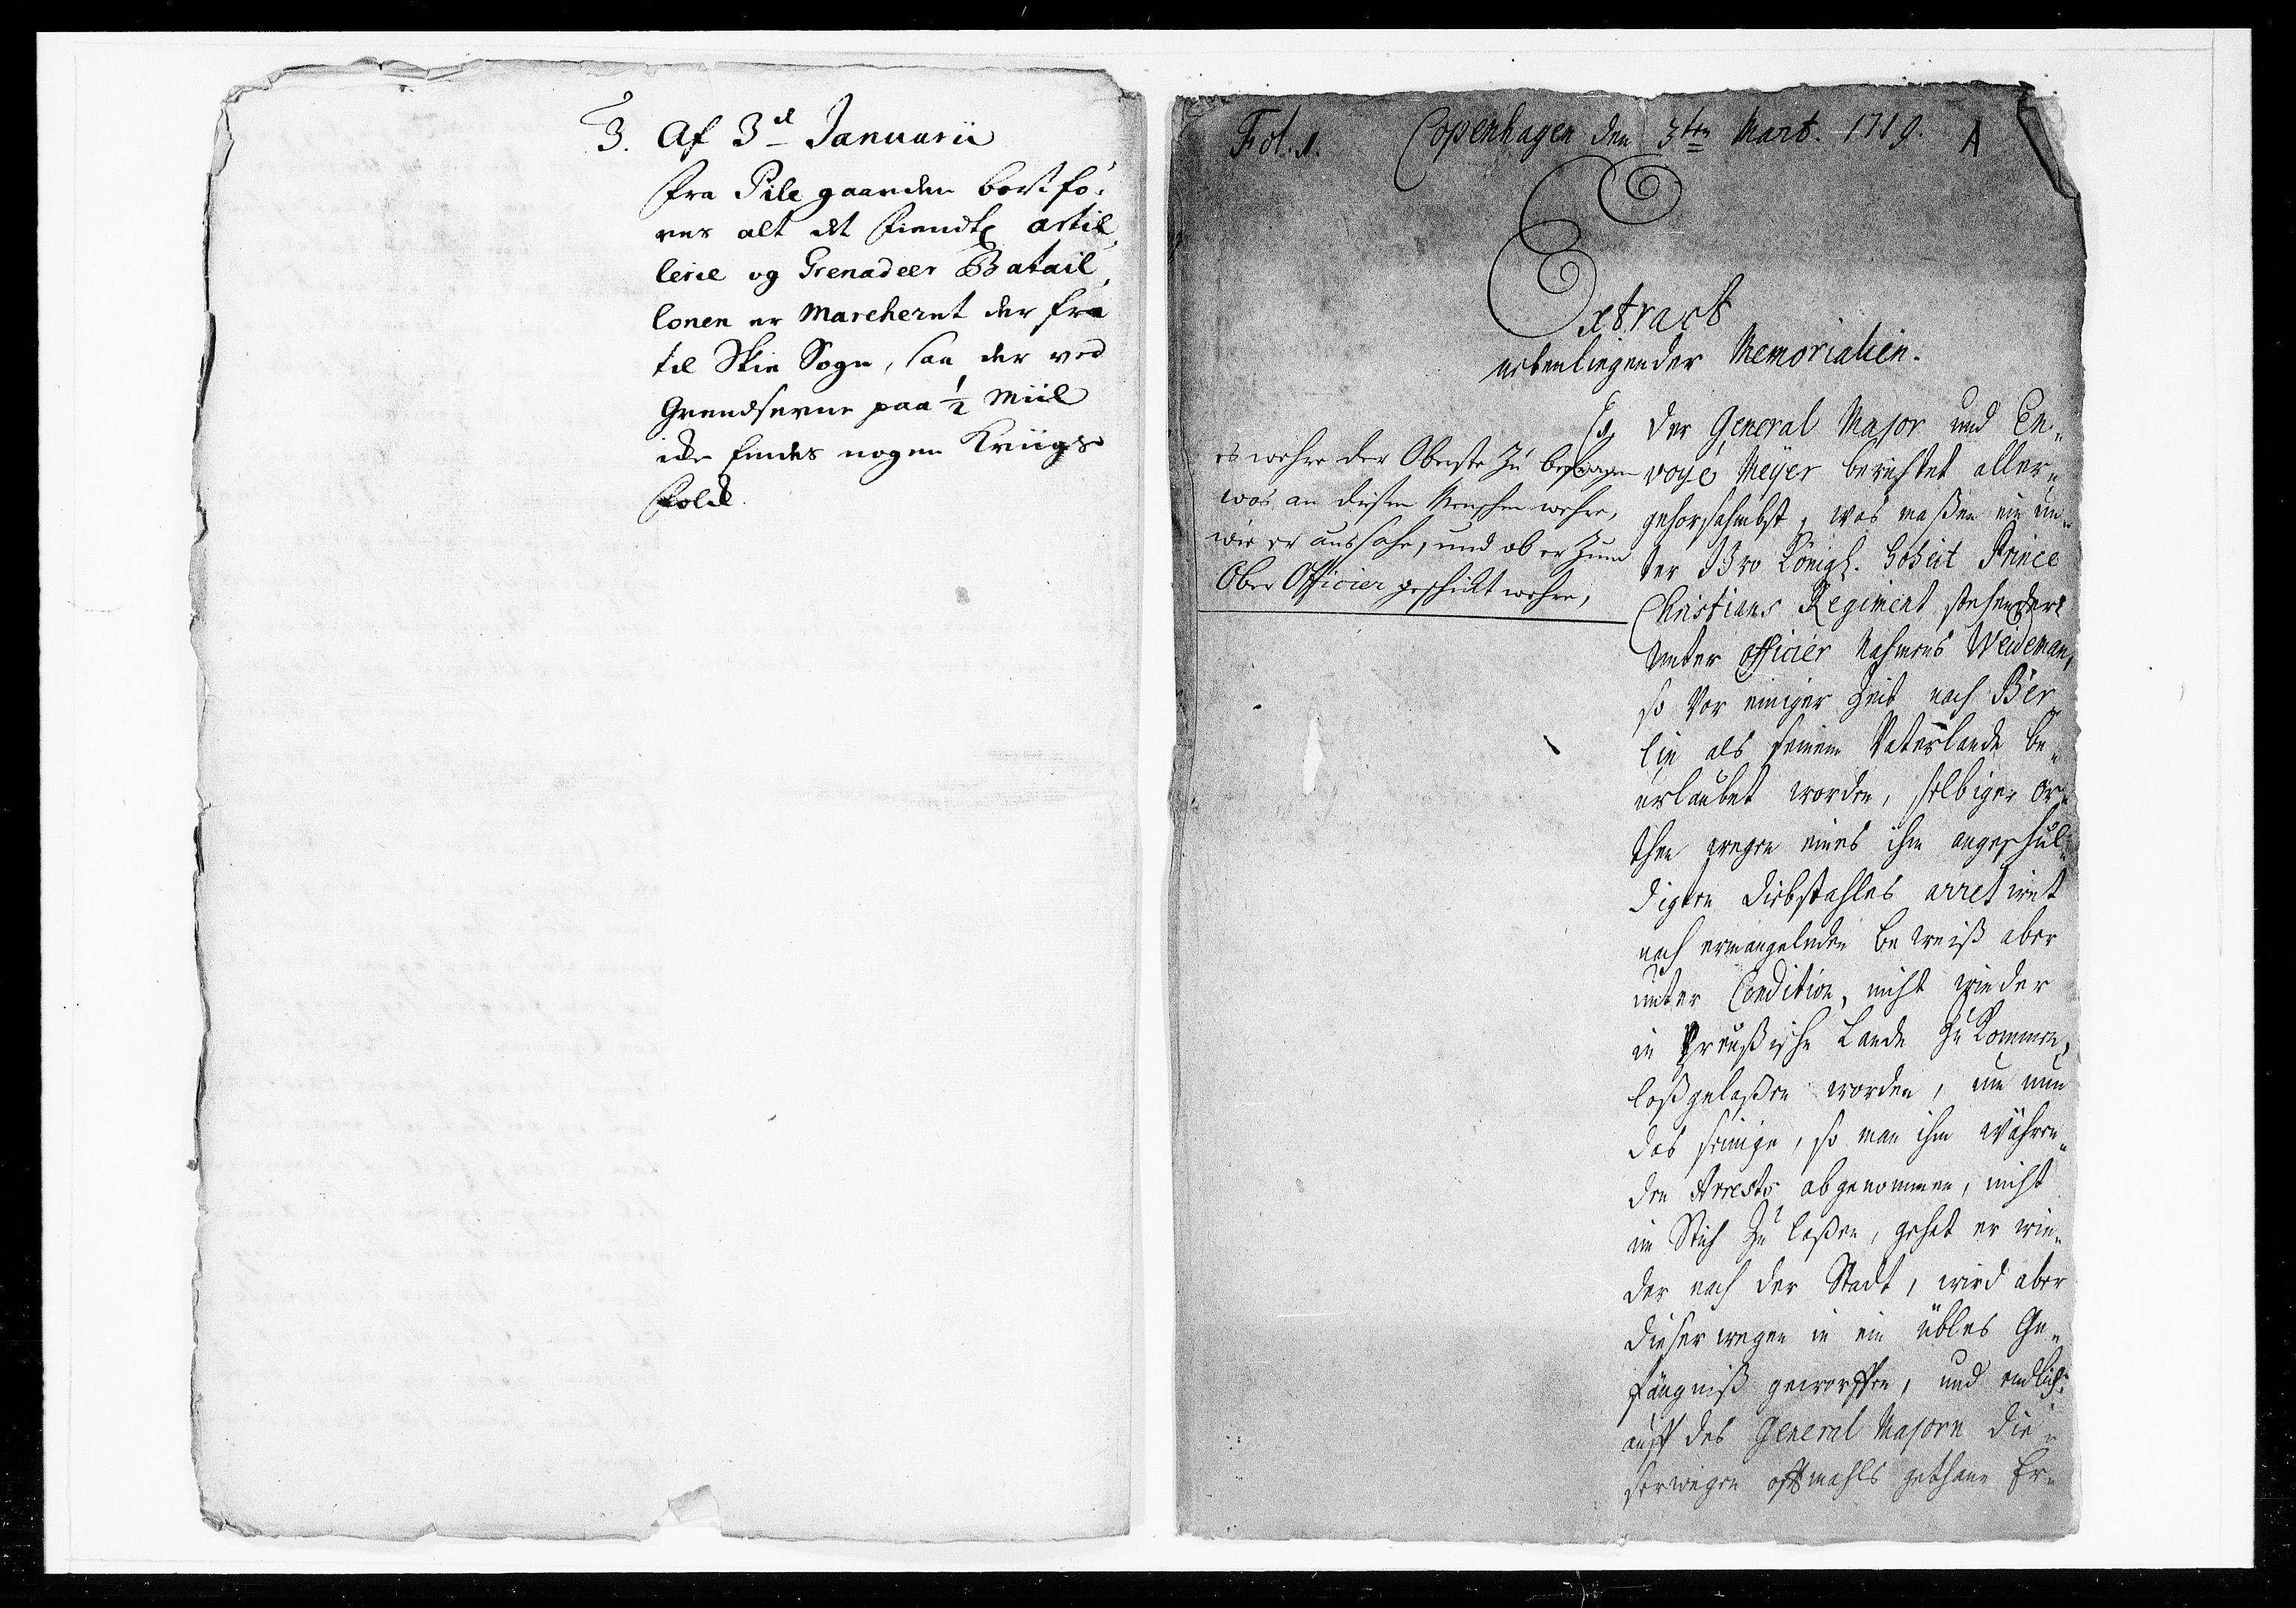 3. Af 3d Januarii
fra Pile gaarden bortfö-
res alt det fiendtl artil
lerie og Grenadeer Batail,
lonen er Marcheret der fra
til Skie Sogn, saa der ved
Grendserne paa 1/2 Miil
icke findes nogen Kriigs
folck.
Fol. 1. Copenhagen den 3ten Mart. 1719. A
Extract
nebenliegender Memorialien.
es wehre der Oberste zu befragen
was an diesen Menschen wehre,
wie er aussehe, und ob er zum
Ober Officier geschickt wehre,
1, Der General Major und En-
voyé Meyer berichtet aller-
gehorsahmbst, was maßen ein un-
ter Ihro Königl. Hoheit Prince
Christians Regiment stehender
Unter officier Nahmens Weideman,
so vor einiger Zeit nach Ber
lin als seinem Vaterlande be-
urlaubet worden, selbiger Or-
then wegen eines ihm angeschul-
digten Diebstahles arretiret
nach ermangelnden Beweiß aber
unter Condition, nicht wieder
in Preußische Lande zu kommen,
loßgelaßen worden, um nun
das seinige, so man ihm währen-
den Arrests abgenommen, nicht
im Stich zu laßen, gehet er wie-
der nach der Stadt, wird aber
dieserwegen in ein übles Ge-
fängniß geworffen, und endlich
auff des General Majorn die-
serwegen offtmahls gethane Er-